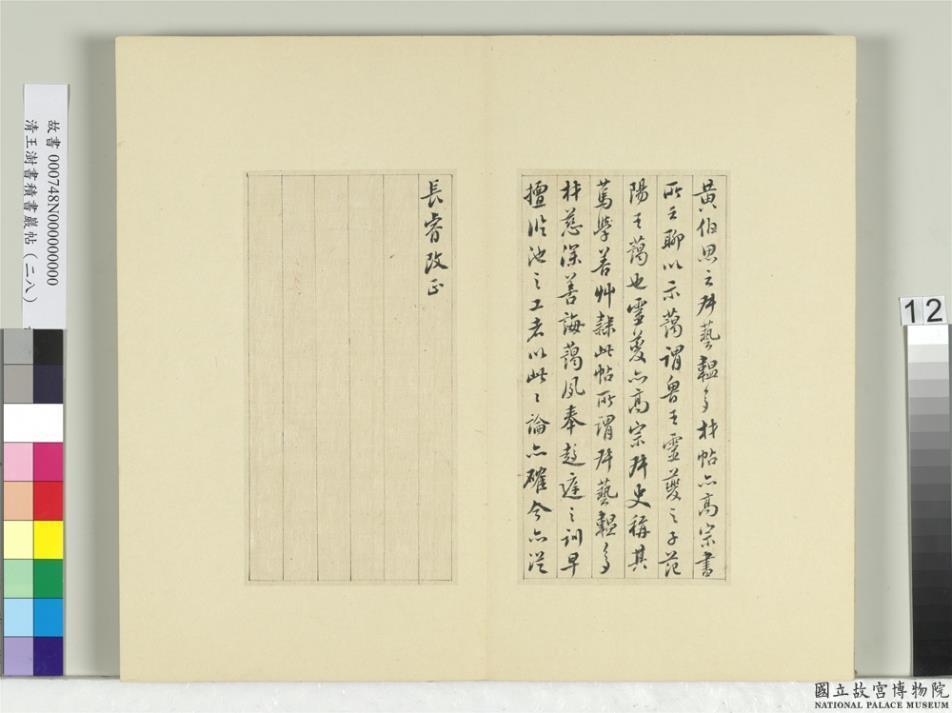 黃伯思云叔藝韞多材帖亦高宗書
所云聊以示藹謂魯王靈夔之子范
陽王藹也靈夔亦高宗叔史稱其
篤學善艸隸此帖所謂叔藝韞多
材慈深善誨藹夙奉趍庭之訓早
擅臨池之工者以此之論亦確今亦從
長睿改正
故書 000748N000000000
清王澍書積書巖帖(二八)
12
國立故宮博物院
NATIONAL PALACE MUSEUM